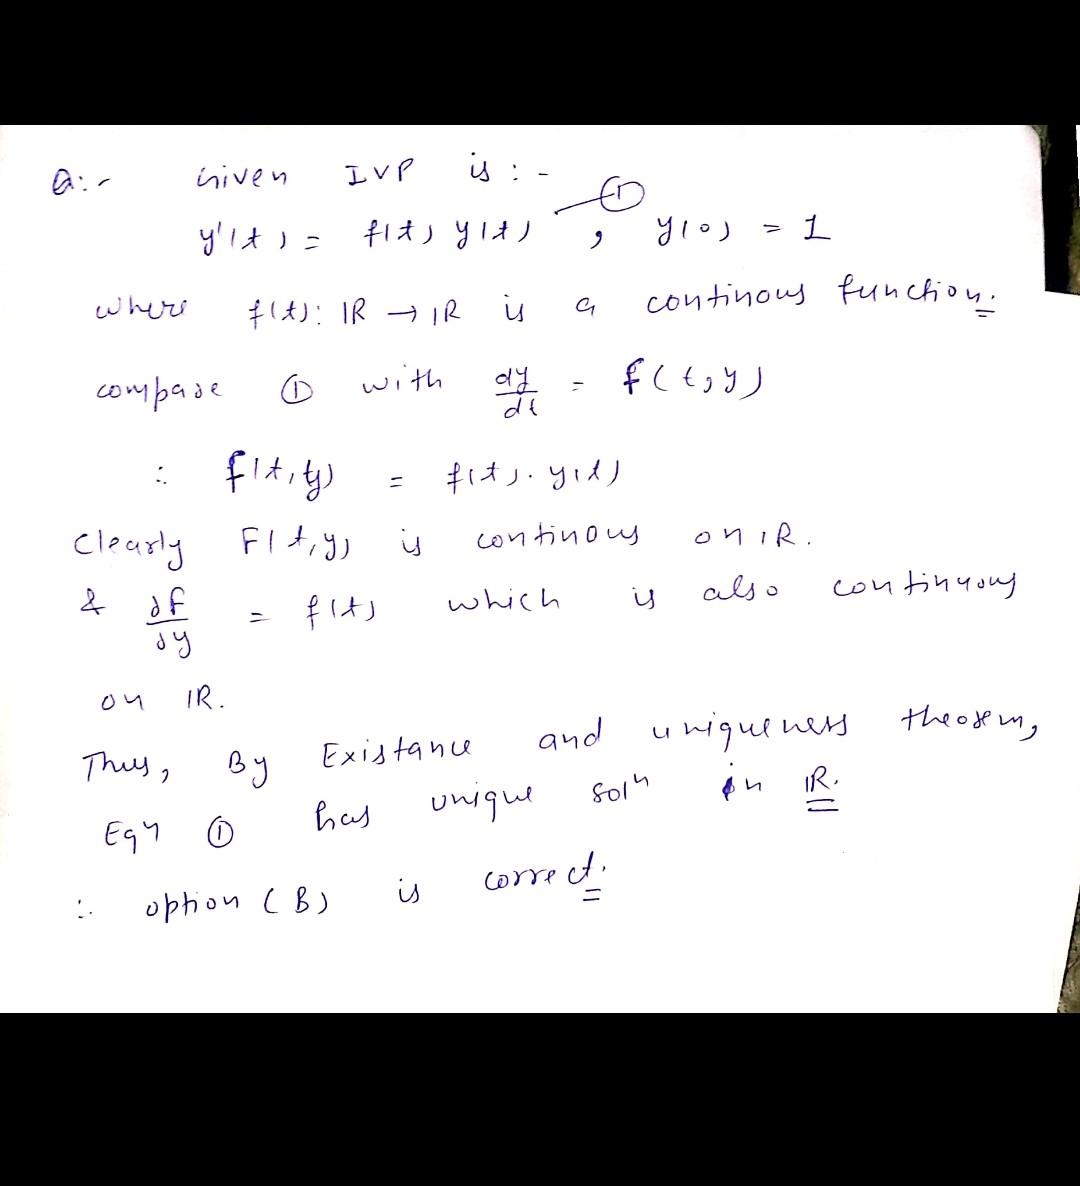 Q:- Given IVP is :-
①
y'(t) = f(t) y(t) , y(0) = 1
where f(t): IR → IR is a continous function.
compare ① with dy/dt = f(t,y)
∴ f(t,y) = f(t). y(t)
Clearly F(t,y) is continous on IR.
& ∂f/∂y = f(t) which is also continuous
on IR.
Thus, By Existance and uniqueness theorem,
Eqn ① has unique solⁿ in IR.
∴ option (B) is correct.